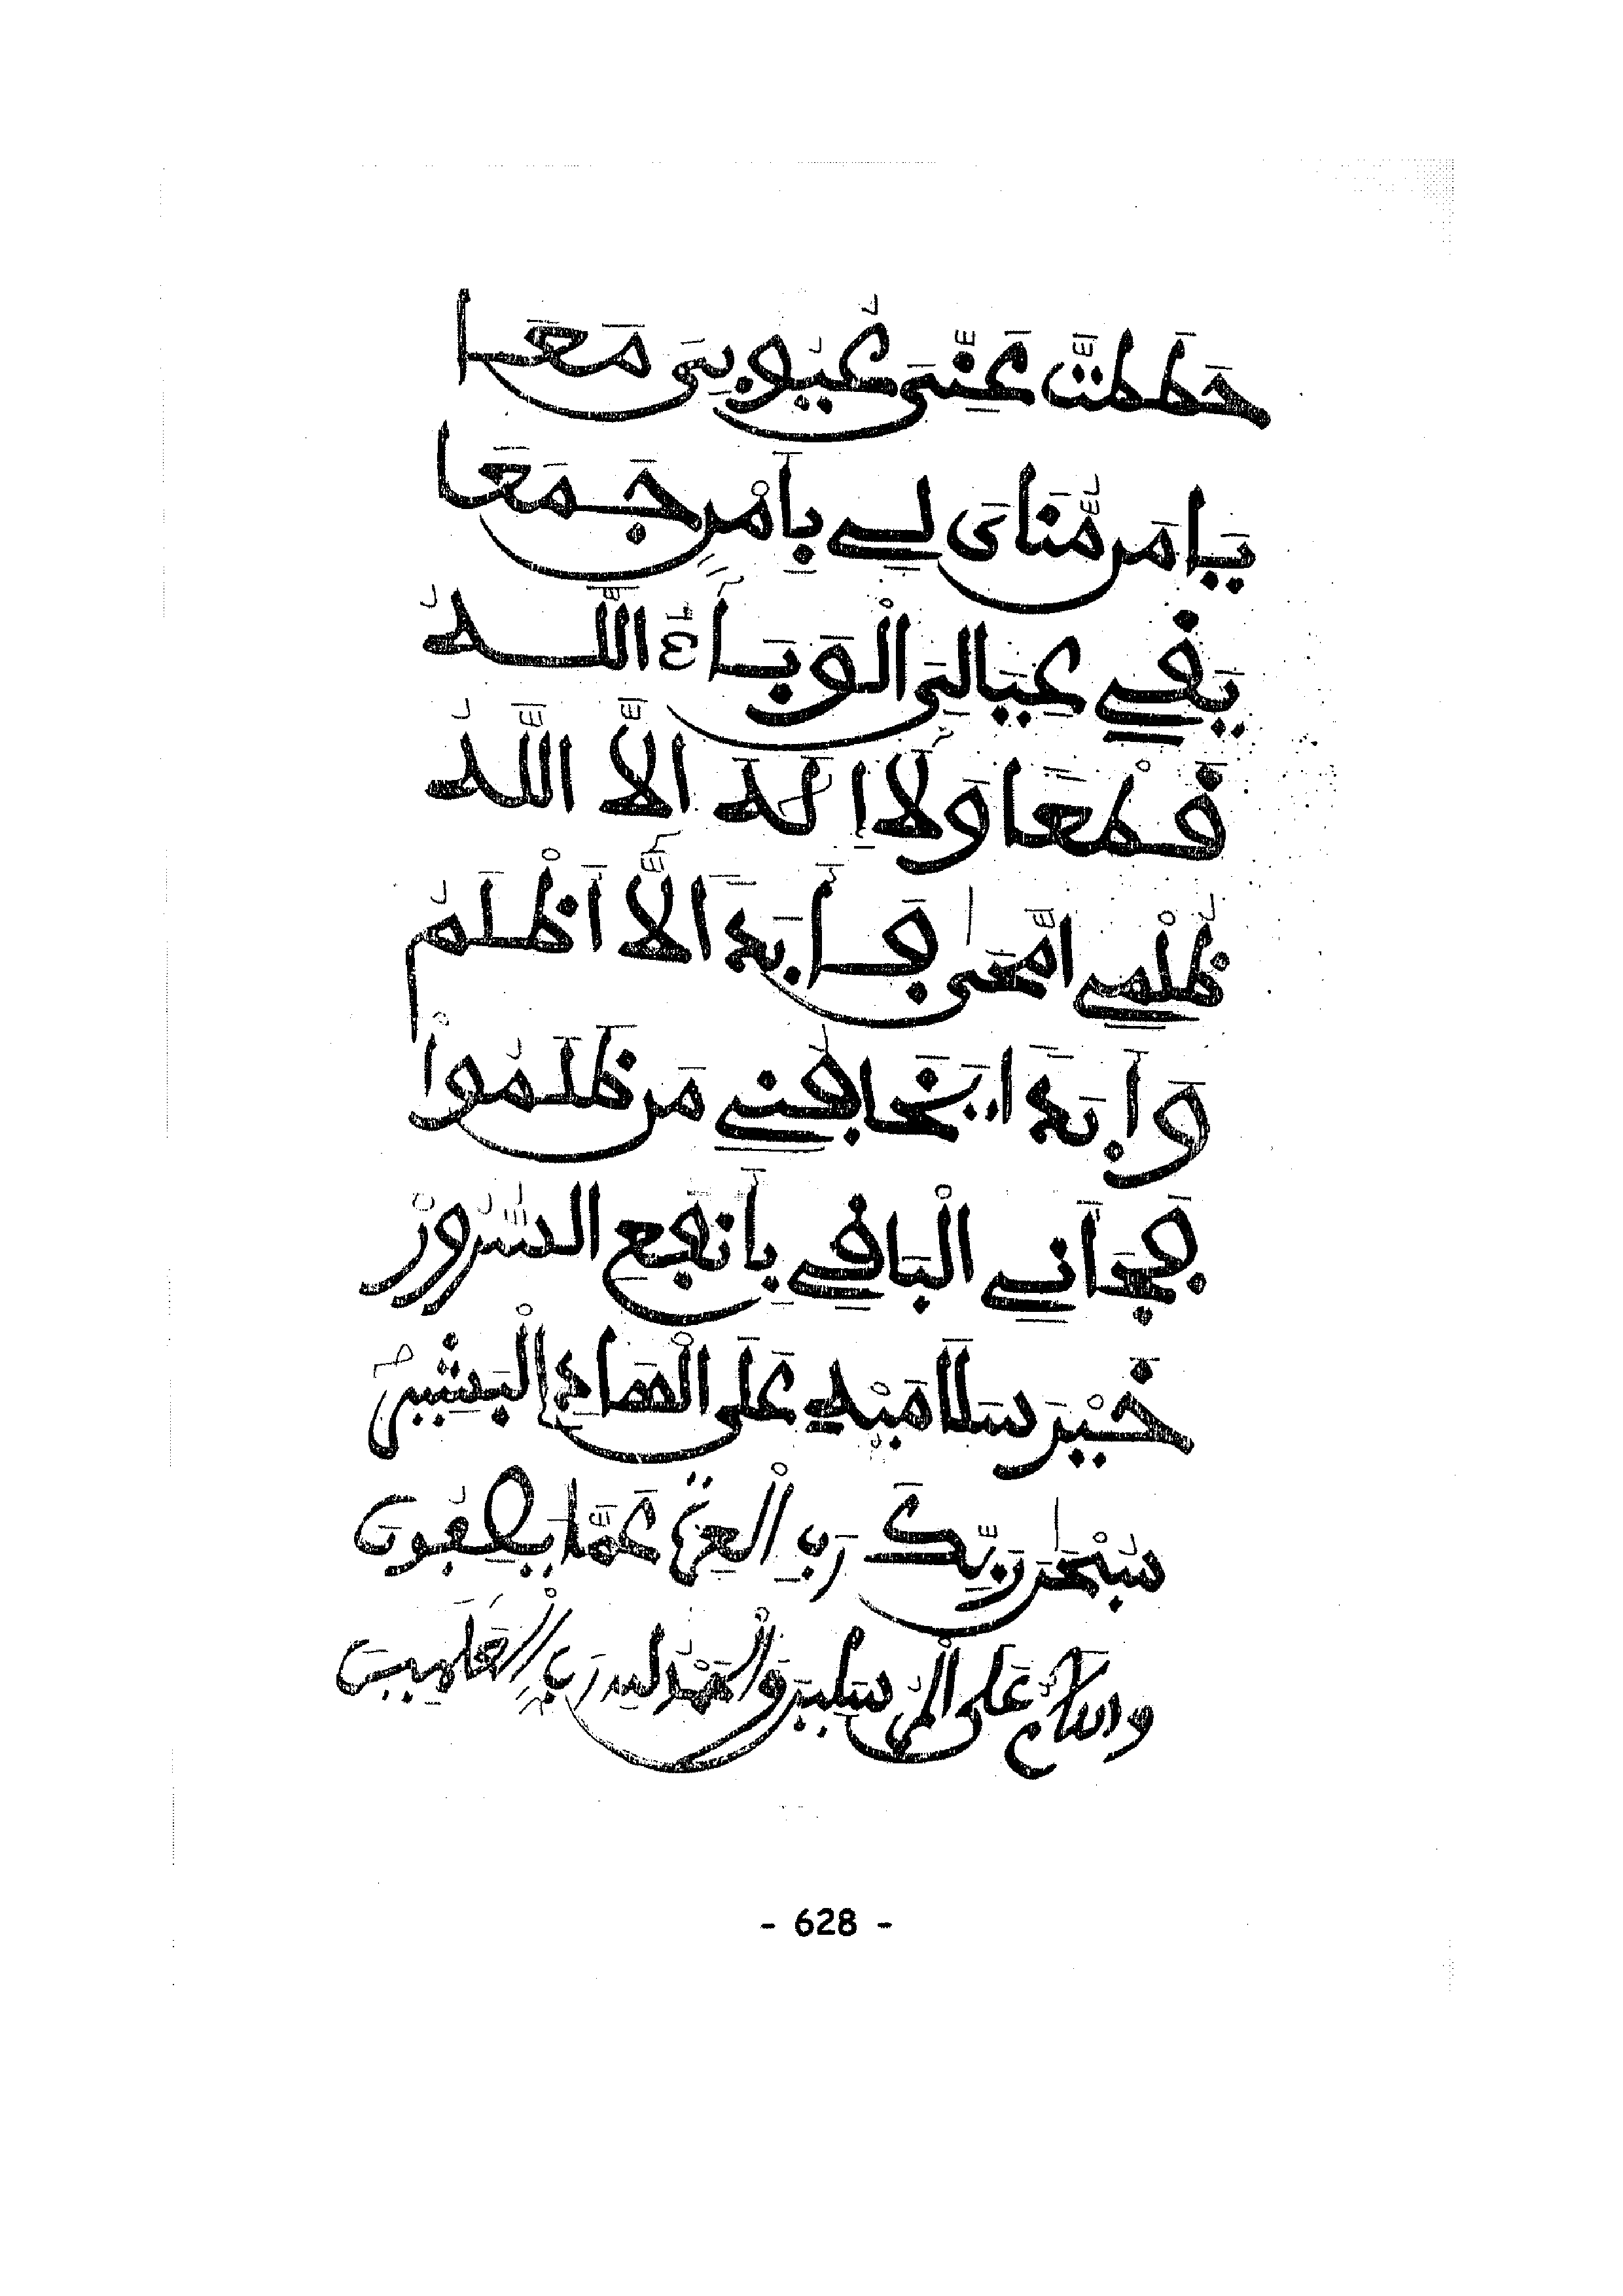 حَطَطتَّ عَنِّىَ عُيُوبِىَ مَعَا
يَا مَن مُّنَاىَ لِي بِأَمْر جَمَعَا
يَفِي عِيَالِىَ الْوَبَآءَ اللَّهُ
قَطْعًا وَلَآ إِلَهَ إِلَّا اللَّهُ
ظُلْمِي امَّحَى فَـ أَبَدًا لَّآ أَظْلَمُ
وَأَبَدًا يَخَافُنِي مَن ظَلَمُوا
فَجَاءَنِي الْبَاقِي بِأَنْفَعِ السُّرُورْ
خَيْرَ سَلَامَيْهِ عَلَى الْهَادِ الْبَشِيرِ
سُبْحَنَ رَبِّكَ رَبِّ الْعِزَّةِ عَمَّا يَصِفُونَ
وَالسَّلَامُ عَلَى الْمُرْسَلِينَ وَالْحَمْدُ لِلهِ رَبِّ الْعَلَمِينَ
- 628 -